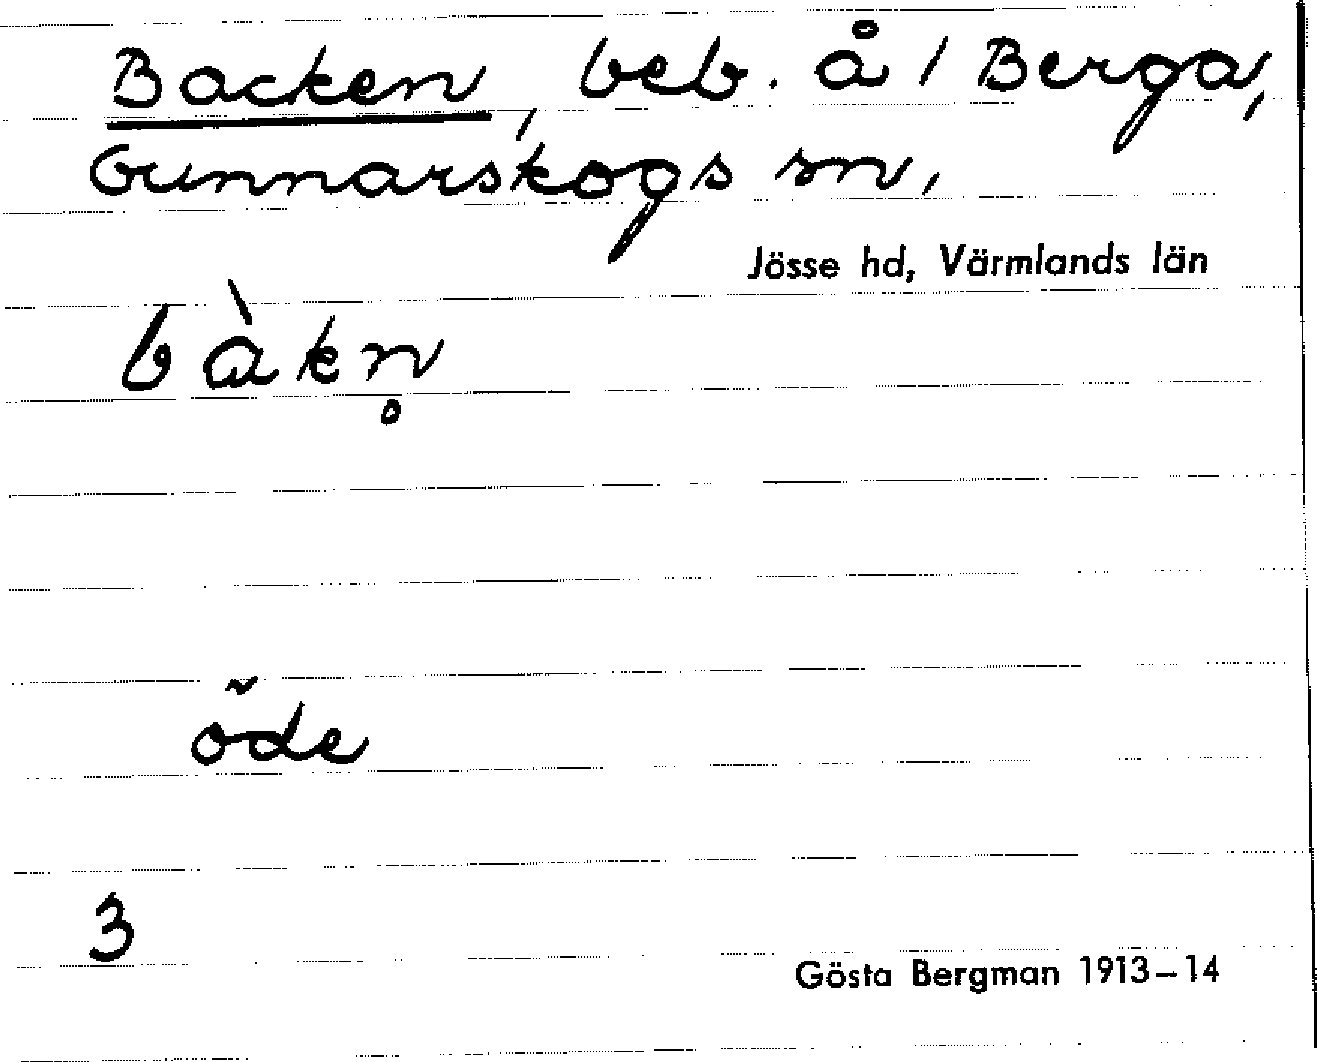 Backen, beb. å 1 Berga,
Gunnarskogs sn,
Jösse hd, Värmlands län
bàkn̥
öde
3
Gösta Bergman 1913–14